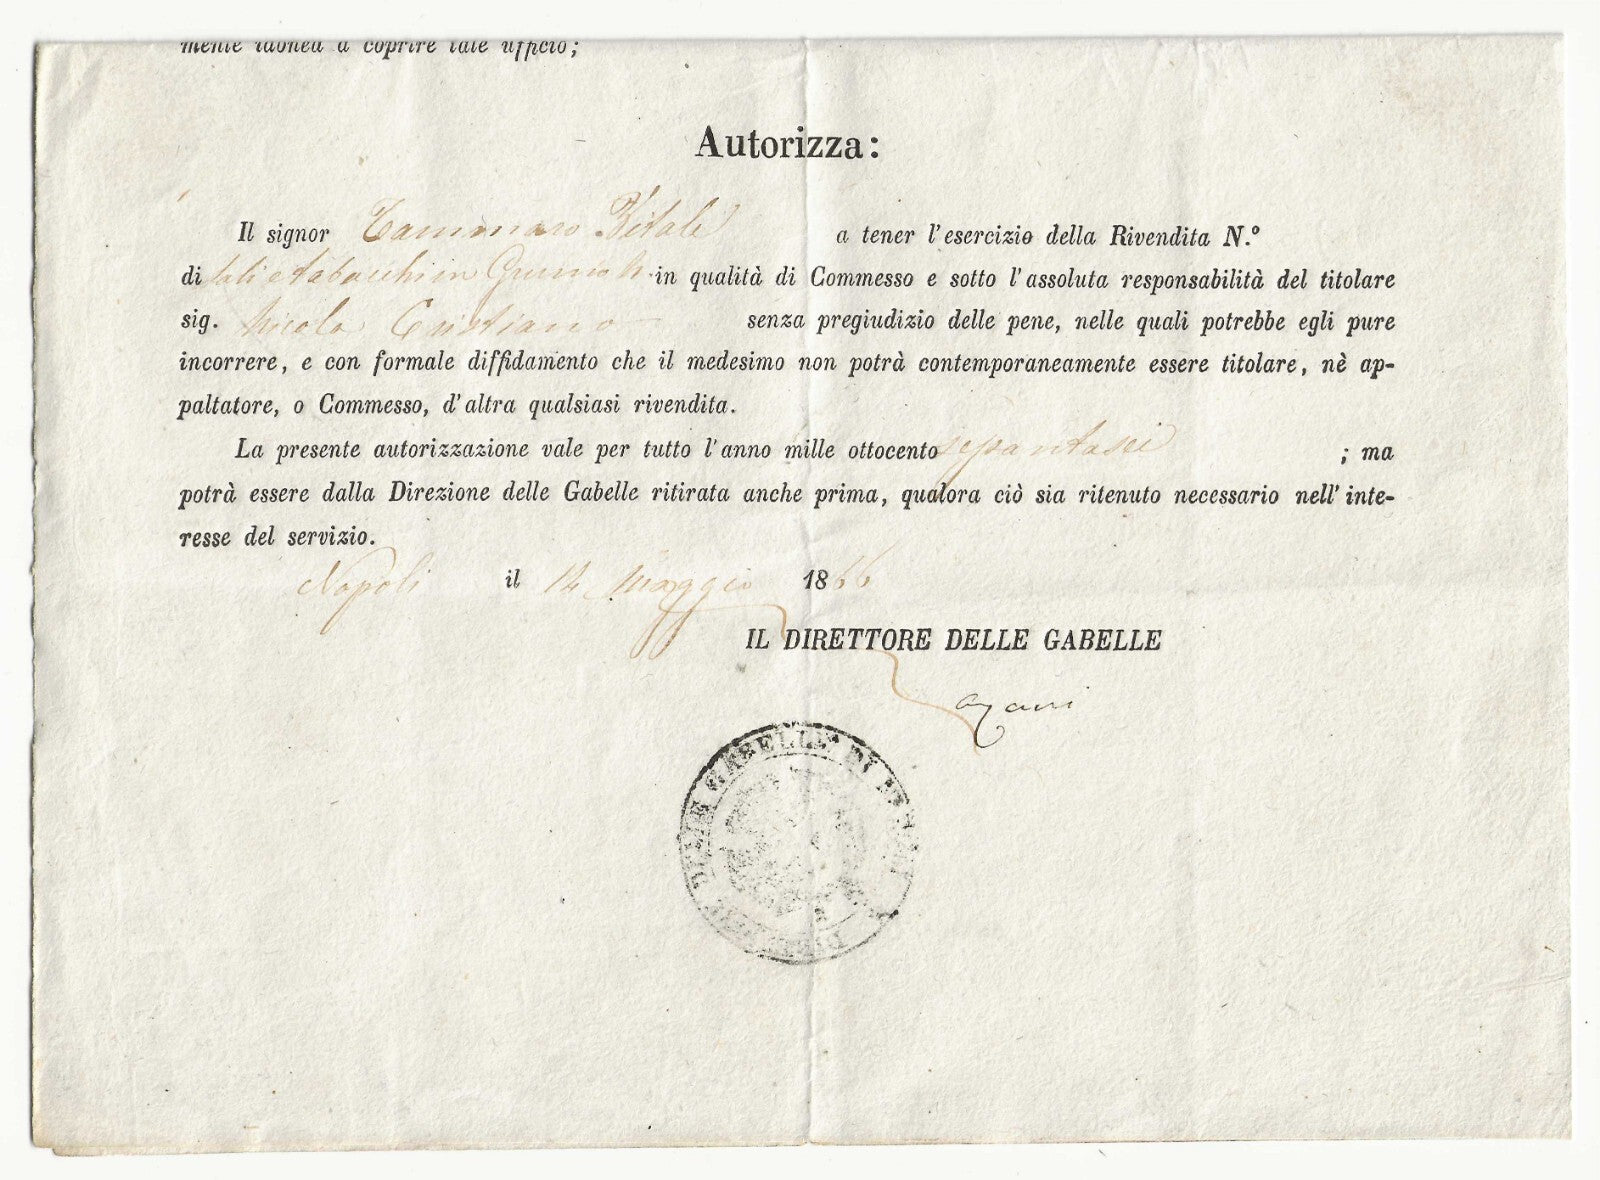 mente idonea a coprire tale ufficio;
Autorizza:
Il signor Tammaro Vitale a tener l'esercizio della Rivendita N.º
di sali e tabacchi in Grumo in qualità di Commesso e sotto l'assoluta responsabilità del titolare
sig. Nicola Cristiano senza pregiudizio delle pene, nelle quali potrebbe egli pure
incorrere, e con formale diffidamento che il medesimo non potrà contemporaneamente essere titolare, nè ap-
paltatore, o Commesso, d'altra qualsiasi rivendita.
La presente autorizzazione vale per tutto l'anno mille ottocento ; ma
potrà essere dalla Direzione delle Gabelle ritirata anche prima, qualora ciò sia ritenuto necessario nell'inte-
resse del servizio.
Napoli il 14 Maggio 1866
IL DIRETTORE DELLE GABELLE
DELLE GABELLE DI